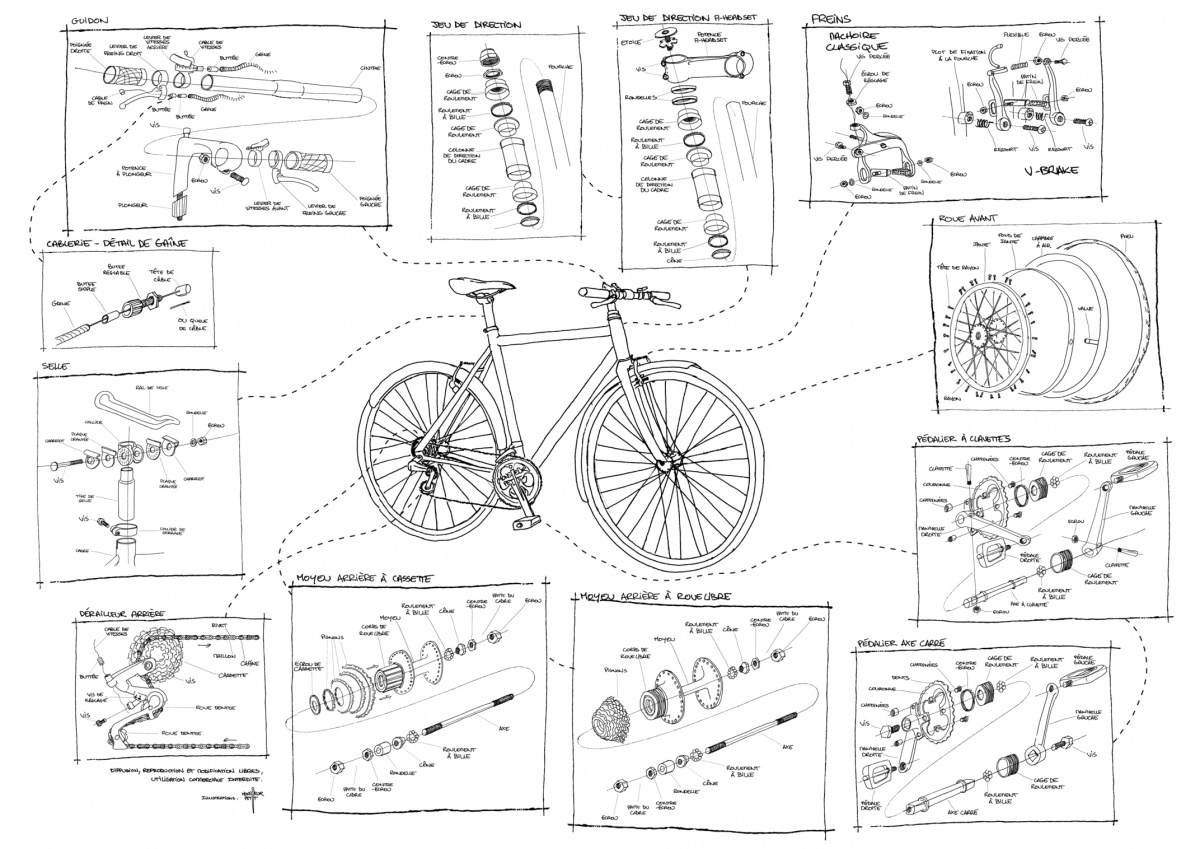 GUIDON
POIGNÉE
DROITE
LEVIER DE
FREINS DROIT
LEVIER DE
VITESSES
ARRIÈRE
CABLE DE
VITESSES
BUTTÉE
GAINE
CINTRE
CABLE
DE FREIN
BUTTÉE
BUTTÉE
GAINE
VIS
POTENCE
À PLONGEUR
PLONGEUR
ECROU
VIS
LEVIER DE
VITESSES AVANT
LEVIER DE
FREINS GAUCHE
POIGNÉE
GAUCHE
JEU DE DIRECTION
CONTRE
-ECROU
ECROU
CAGE DE
ROULEMENT
ROULEMENT
À BILLE
CAGE DE
ROULEMENT
COLONNE
DE DIRECTION
DU CADRE
CAGE DE
ROULEMENT
ROULEMENT
À BILLE
FOURCHE
JEU DE DIRECTION A-HEADSET
ETOILE
POTENCE
A-HEADSET
VIS
RONDELLES
FOURCHE
CAGE DE
ROULEMENT
ROULEMENT
À BILLE
CAGE DE
ROULEMENT
COLONNE DE
DIRECTION
DU CADRE
CAGE DE
ROULEMENT
ROULEMENT
À BILLE
CÔNE
FREINS
MACHOIRE
CLASSIQUE
VIS PERLÉE
ÉCROU DE
RÉGLAGE
ECROU
RONDELLE
VIS PERLÉE
ECROU
RONDELLE
RONDELLE
ECROU
PATIN
DE FREIN
PLOT DE FIXATION
À LA FOURCHE
FLEXIBLE
ECROU
VIS PERLÉE
PATIN
DE FREIN
ECROU
RESSORT
VIS
RESSORT
VIS
V-BRAKE
CABLERIE - DÉTAIL DE GAÎNE
GAINE
BUTÉE
SIMPLE
BUTÉE
RÉGLABLE
TÊTE DE
CÂBLE
OU QUEUE
DE CÂBLE
ROUE AVANT
TÊTE DE RAYON
JANTE
FOND DE
JANTE
CHAMBRE
À AIR
PNEU
VALVE
RAYON
SELLE
RAIL DE SELLE
COLLIER
PLAQUE
CRANTÉE
CHARRIOT
RONDELLE
ECROU
VIS
PLAQUE
CRANTÉE
CHARRIOT
TIGE DE
SELLE
VIS
COLLIER DE
SERRAGE
CADRE
PÉDALIER À CLAVETTES
CLAVETTE
CHEMINÉES
CONTRE
-ECROU
CAGE DE
ROULEMENT
ROULEMENT
À BILLE
PÉDALE
GAUCHE
COURONNE
CHEMINÉES
MANIVELLE
DROITE
PÉDALE
DROITE
ECROU
MANIVELLE
GAUCHE
CLAVETTE
CAGE DE
ROULEMENT
ROULEMENT
À BILLE
AXE À CLAVETTE
ECROU
DÉRAILLEUR ARRIÈRE
CABLE DE
VITESSES
RIVET
MAILLON
CHAÎNE
CASSETTE
BUTTÉE
VIS
VIS DE
RÉGLAGE
VIS
ROUE DENTÉE
ROUE DENTÉE
DIFFUSION, REPRODUCTION ET MODIFICATION LIBRES,
UTILISATION COMMERCIALE INTERDITE.
ILLUSTRATIONS:
MOYEU ARRIÈRE À CASSETTE
ECROU DE
CASSETTE
PIGNONS
CORPS DE
ROUE LIBRE
MOYEU
ROULEMENT
À BILLE
CÔNE
CONTRE
-ECROU
PATTE DU
CADRE
ECROU
AXE
ROULEMENT
À BILLE
CÔNE
RONDELLE
CONTRE
-ECROU
PATTE DU
CADRE
ECROU
MOYEU ARRIÈRE À ROUE LIBRE
PIGNONS
CORPS DE
ROUE LIBRE
MOYEU
ROULEMENT
À BILLE
CÔNE
CONTRE
-ECROU
PATTE DU
CADRE
ECROU
AXE
ROULEMENT
À BILLE
CÔNE
RONDELLE
CONTRE
-ECROU
PATTE DU
CADRE
ECROU
PÉDALIER AXE CARRÉ
DENTS
CHEMINÉES
COURONNE
CHEMINÉES
CONTRE
-ECROU
CAGE DE
ROULEMENT
ROULEMENT
À BILLE
PÉDALE
GAUCHE
MANIVELLE
GAUCHE
VIS
MANIVELLE
DROITE
PÉDALE
DROITE
VIS
CAGE DE
ROULEMENT
ROULEMENT
À BILLE
AXE CARRÉ